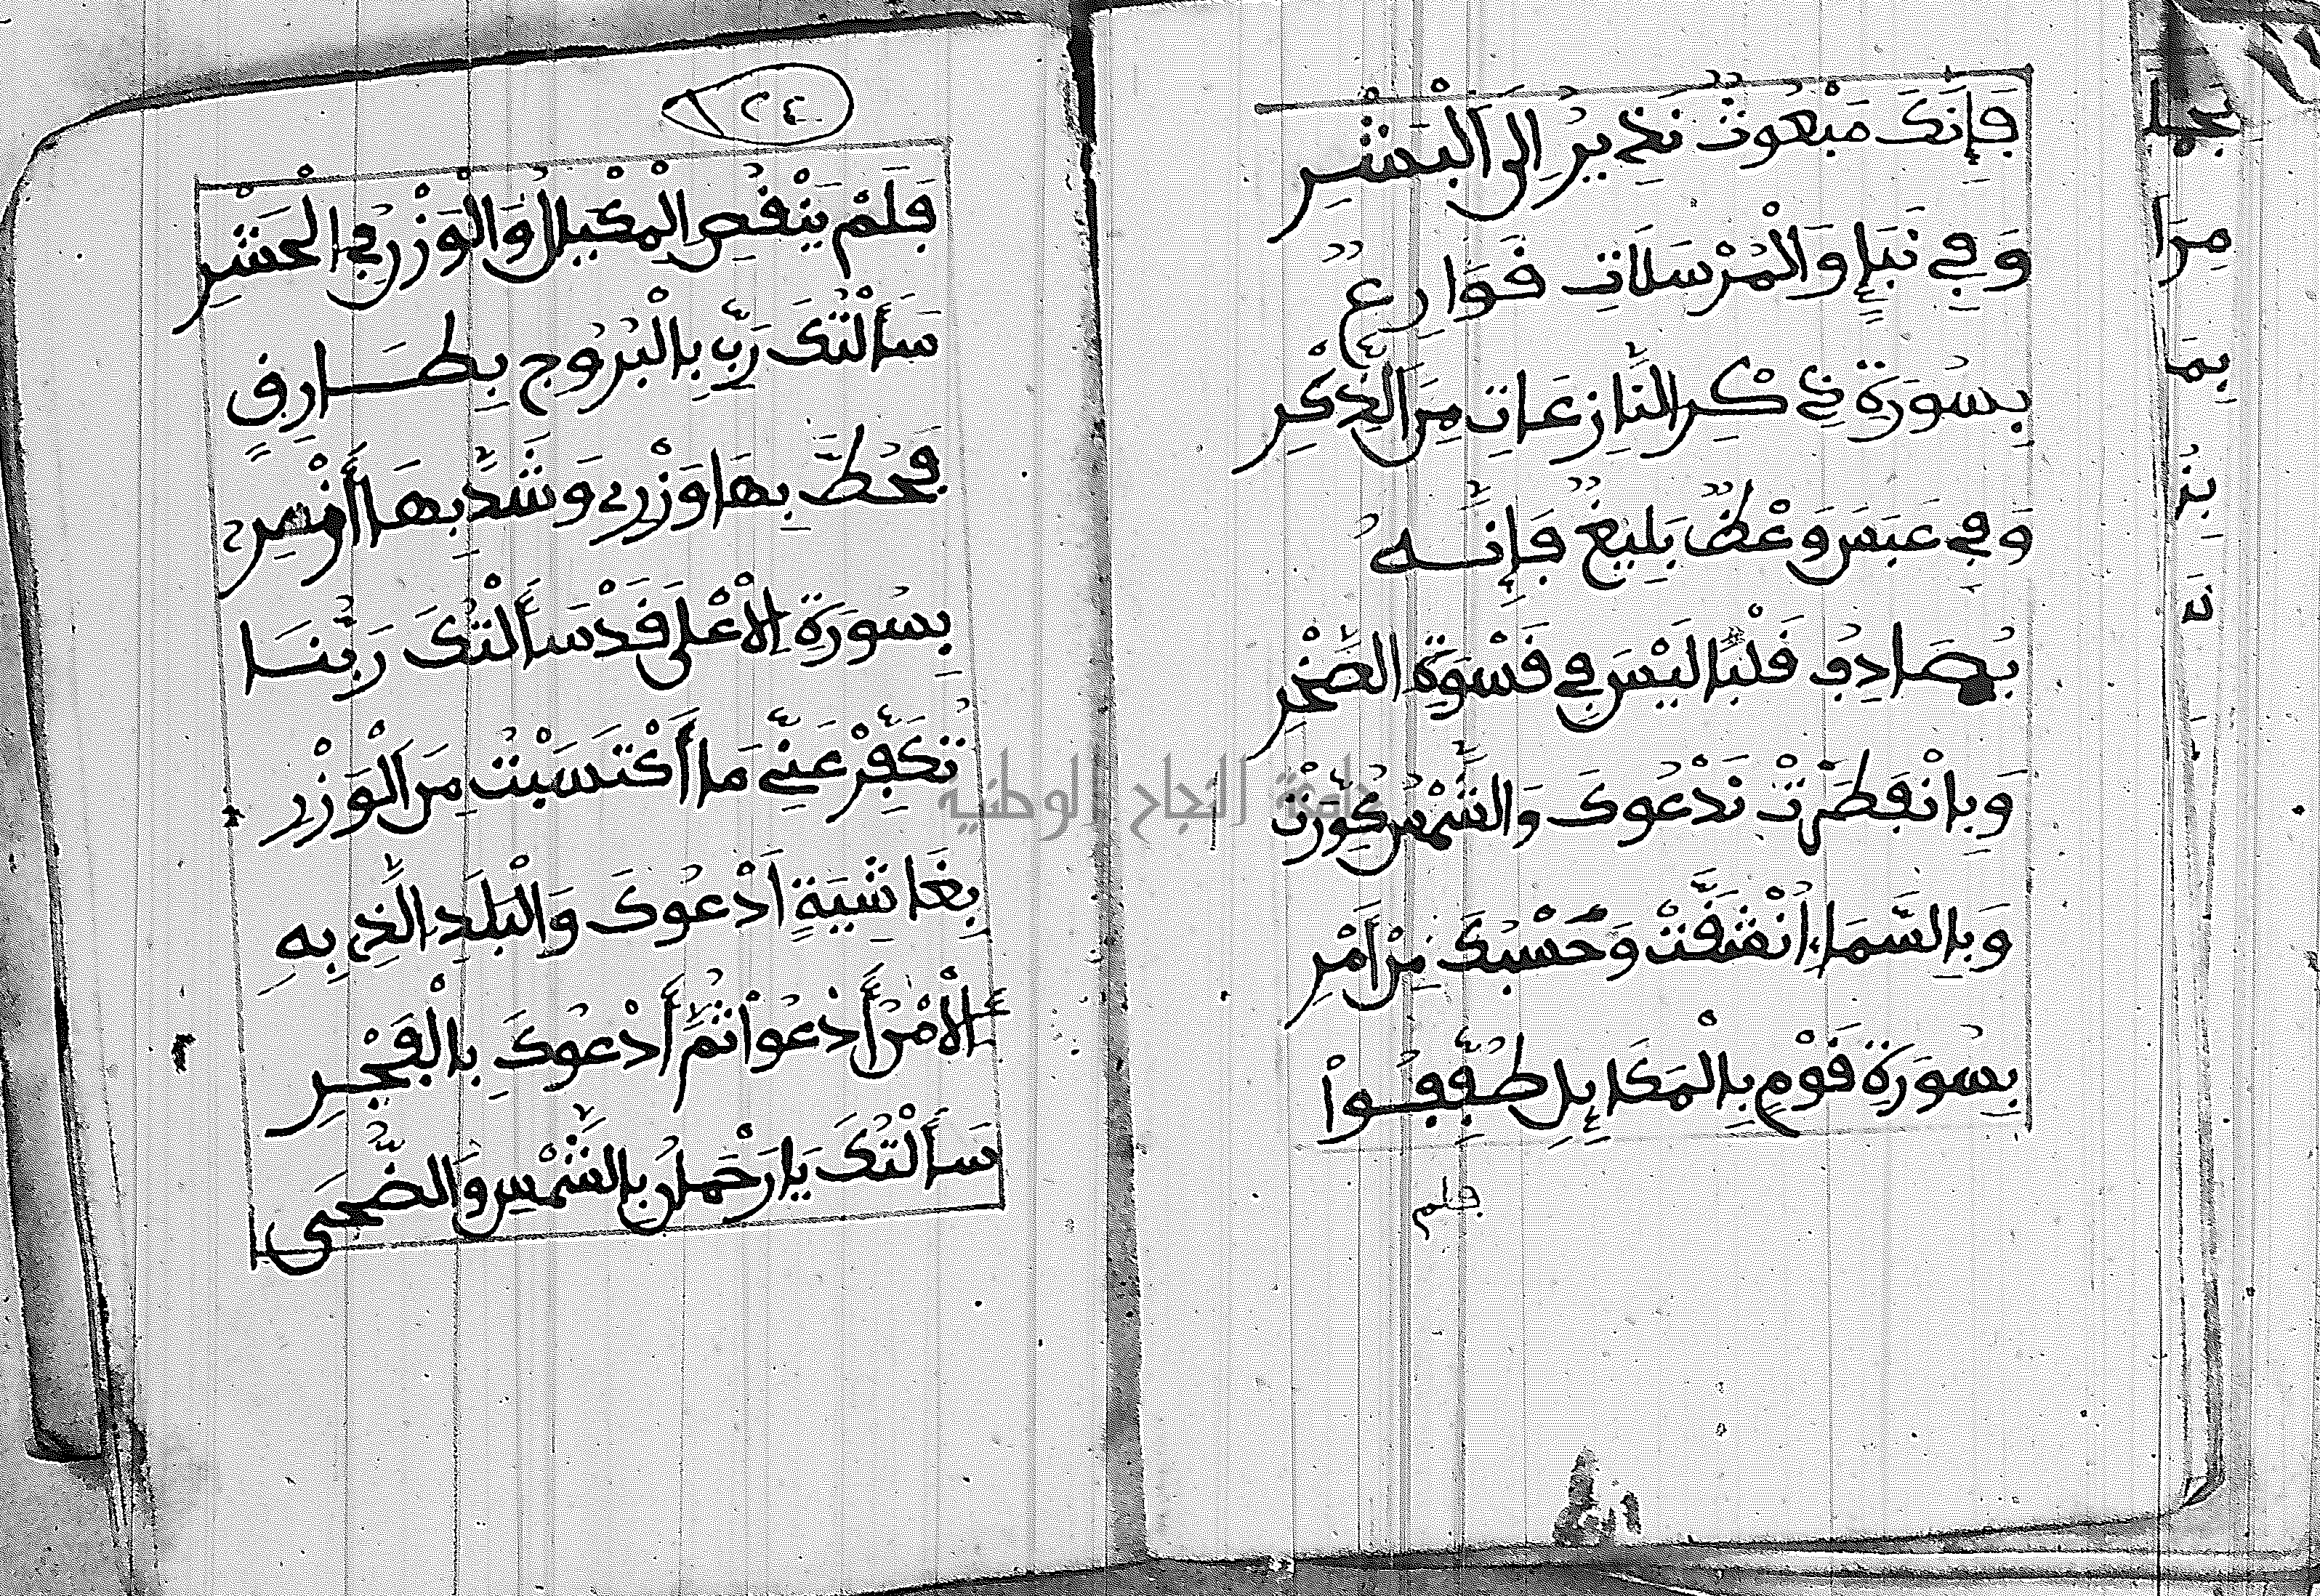 فَإِنَّكَ مَبْعُوثٌ نَذِيرٌ إِلَى الْبَشَرِ
وَفِي نَبَإٍ وَالْمُرْسَلَاتِ قَوَارِعٌ
بِسُورَةِ ذِكْرِ النَّازِعَاتِ مِنَ الذِّكْرِ
وَفِي عَبَسَ وَعْظٌ بَلِيغٌ فَإِنَّهُ
يُصَادِفُ قَلْبًا لَيْسَ فِي قَسْوَةِ الصَّخْرِ
وَبِانْفَطَرَتْ نَدْعُوكَ وَالشَّمْسُ كُوِّرَتْ
وَبِالسَّمَاءُ انْشَقَّتْ وَحَسْبُكَ مِنْ أَمْرِ
بِسُورَةِ قَوْمٍ بِالْمَكَايِلِ طَفَّفُوا
فلم
١٢٤
فَلَمْ يَنْقُصِ الْمِكْيَالُ وَالْوَزْنُ فِي الْحَشْرِ
سَأَلْتُكَ رَبِّ بِالْبُرُوجِ بِطَارِقٍ
فَحُطَّ بِهَا وَزْرِي وَشُدَّ بِهَا أَسْرِي
بِسُورَةِ الْأَعْلَى قَدْ سَأَلْتُكَ رَبَّنَا
تُكَفِّرْ عَنِّي مَا أَكْتَسَبْتُ مِنَ الْوَزْرِ
بِغَاشِيَةٍ أَدْعُوكَ وَالْبَلَدِ الَّذِي بِهِ
الْأَمْرُ أَدْعُوا ثُمَّ أَدْعُوكَ بِالْفَجْرِ
سَأَلْتُكَ يَا رَحْمَنُ بِالشَّمْسِ وَالضُّحَى
جامعة النجاح الوطنية